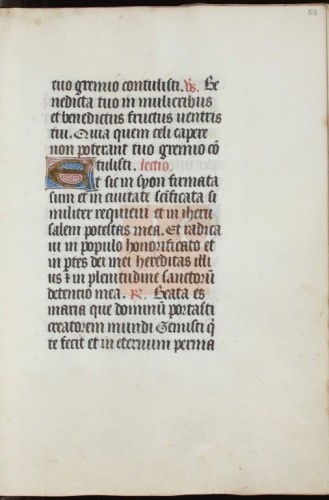 58
tuo gremio contulisti. vs. Be
nedicta tuo in mulieribus
et benedictus fructus ventris
tui. Quia quem celi capere
non poterant tuo gremio cō
tulisti. lectio.
Et sic in syon firmata
sum et in civitate sc̄ificata si
militer requieui et in iheru
salem potestas mea. Et radica
ui in populo honorificato et
in p̄tes dei mei hereditas illi
us ⁊ in plenitudine sanctorū
detentio mea. R. Beata es
maria que dominū portasti
creatorem mundi Genuisti q̄
te fecit et in eternum perma